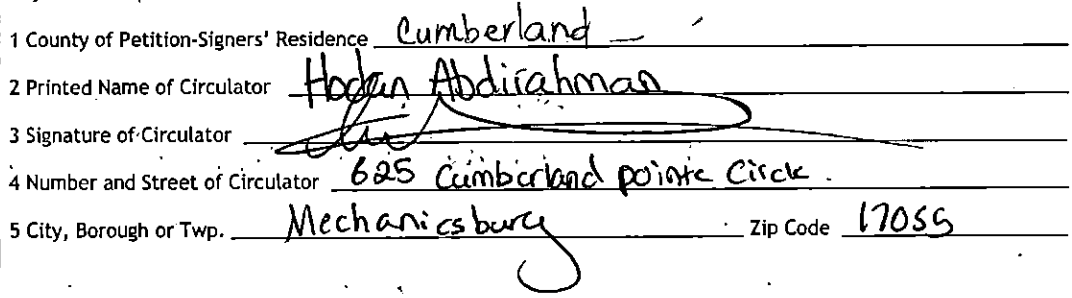 1 County of Petition-Signers' Residence Cumberland
2 Printed Name of Circulator Hodan Abdirahman
3 Signature of Circulator
4 Number and Street of Circulator 625 Cumberland pointe Circle.
5 City, Borough or Twp. Mechanicsburg Zip Code 17055